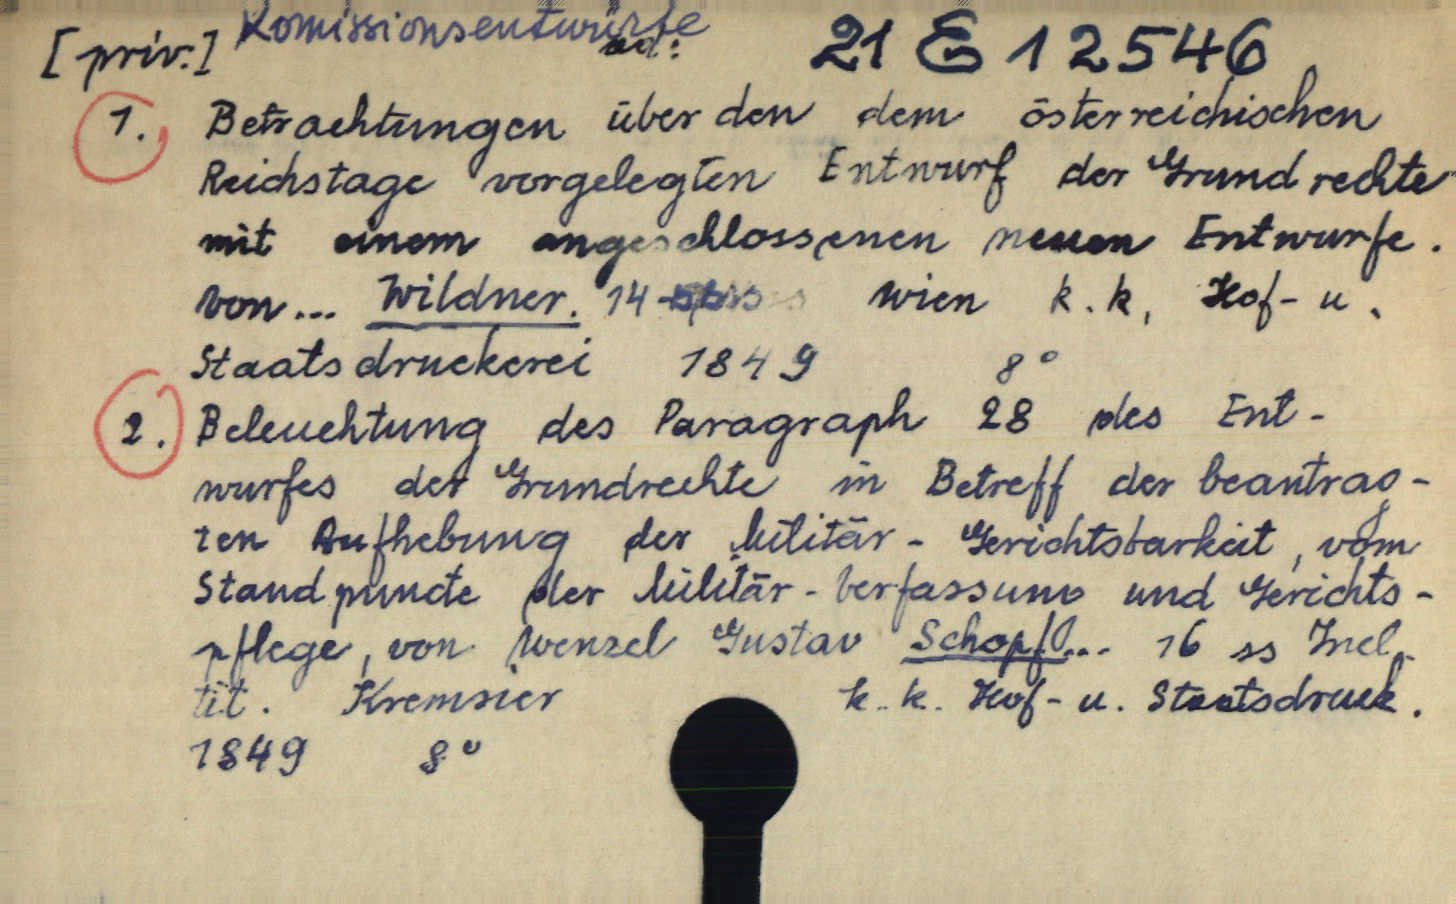 [priv.] Komissionsentwürfe ad: 21 E 12546
1. Betrachtungen über den dem österreichischen
Reichstage vorgelegten Entwurf der Grundrechte
mit einem angeschlossenen neuen Entwurfe.
von... Wildner. 14 Wien k.k. Hof- u.
Staatsdruckerei 1849 8°
2. Beleuchtung des Paragraph 28 des Ent-
wurfes der Grundrechte in Betreff der beantrag-
ten Aufhebung der Militär-Gerichtsbarkeit, vom
Standpuncte der Militär-Verfassung und Gerichts-
pflege, von Wenzel Gustav Schopf... 16 ss Incl.
tit. Kremsier k.k. Hof- u. Staatsdruck.
1849 8°